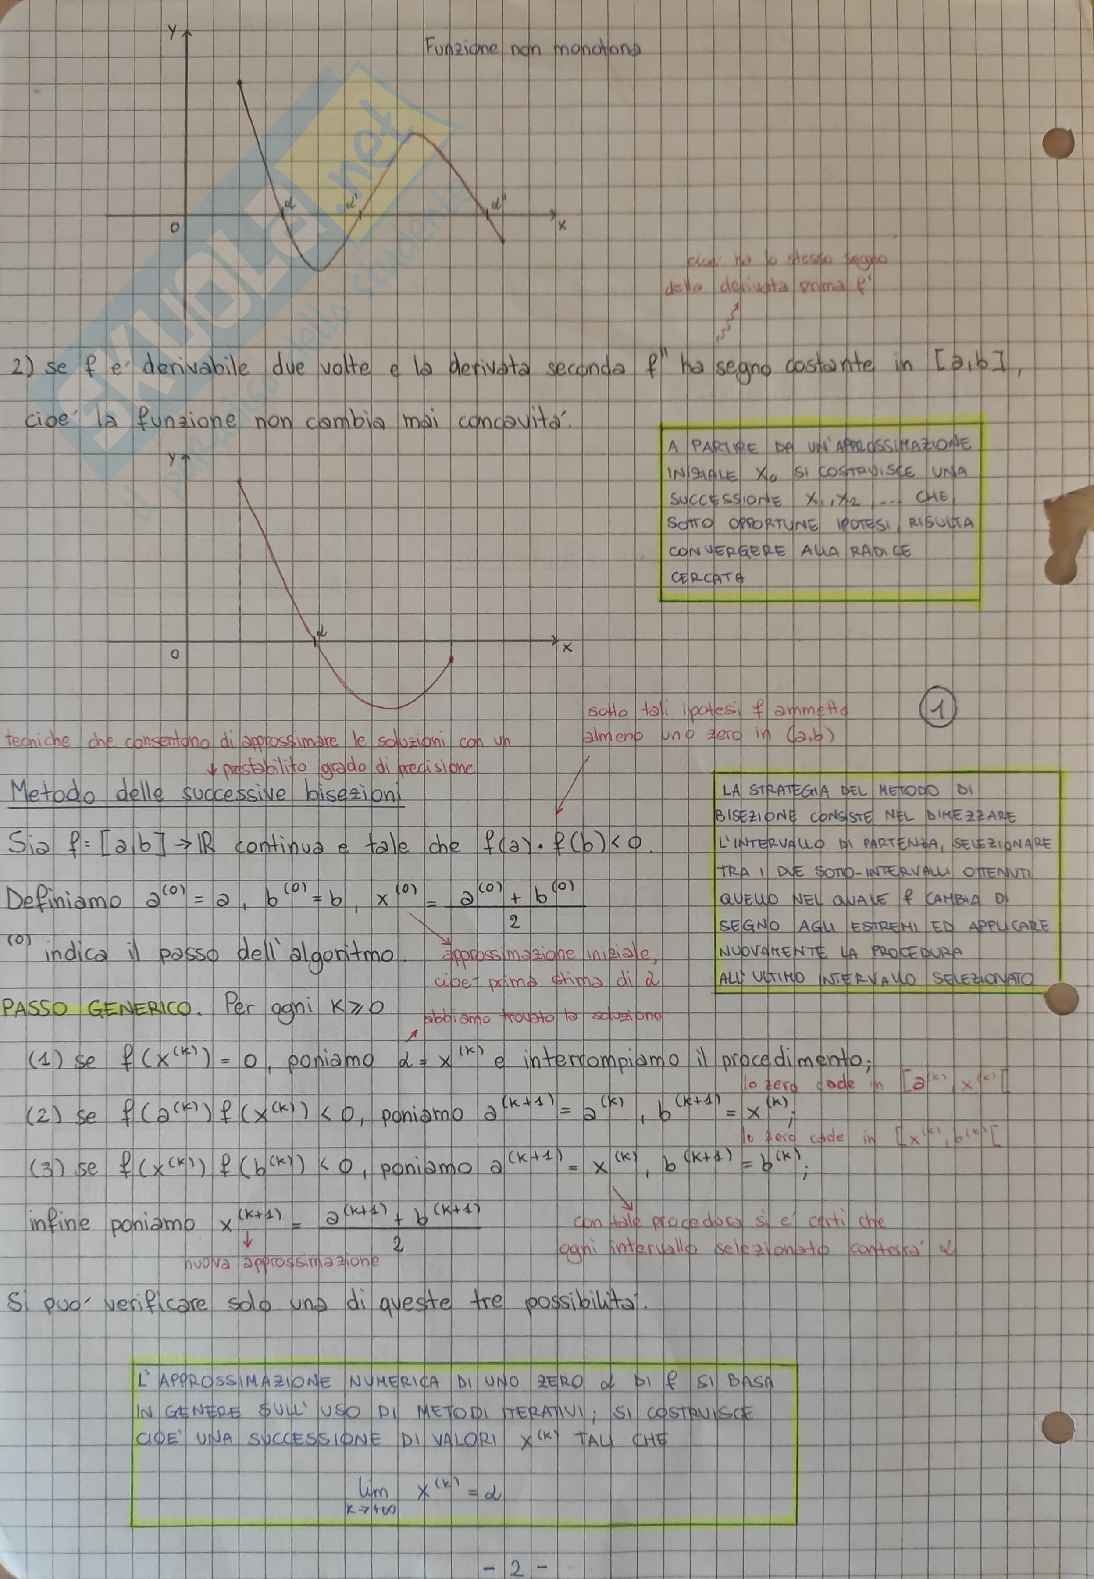 Y
Funzione non monotona
α
α'
α"
O
x
cioè ha lo stesso segno
della derivata prima f'
2) se f è derivabile due volte e la derivata seconda f" ha segno costante in [a,b],
cioè la funzione non cambia mai concavità.
Y
α
O
x
A PARTIRE DA UN'APPROSSIMAZIONE
INIZIALE X₀ SI COSTRUISCE UNA
SUCCESSIONE X₁, X₂, ... CHE,
SOTTO OPPORTUNE IPOTESI, RISULTA
CONVERGERE ALLA RADICE
CERCATA
sotto tali ipotesi f ammette
almeno uno zero in (a,b)
1
tecniche che consentono di approssimare le soluzioni con un
prestabilito grado di precisione
Metodo delle successive bisezioni
Sia f = [a,b] → ℝ continua e tale che f(a) · f(b) < 0.
Definiamo a⁽⁰⁾ = a, b⁽⁰⁾ = b, x⁽⁰⁾ = a⁽⁰⁾ + b⁽⁰⁾
2
⁽⁰⁾ indica il passo dell'algoritmo.
approssimazione iniziale,
cioè prima stima di α
LA STRATEGIA DEL METODO DI
BISEZIONE CONSISTE NEL DIMEZZARE
L'INTERVALLO DI PARTENZA, SELEZIONARE
TRA I DUE SOTTO-INTERVALLI OTTENUTI
QUELLO NEL QUALE f CAMBIA DI
SEGNO AGLI ESTREMI ED APPLICARE
NUOVAMENTE LA PROCEDURA
ALL'ULTIMO INTERVALLO SELEZIONATO
PASSO GENERICO. Per ogni K ≥ 0
abbiamo trovato la soluzione
(1) se f(x⁽ᴷ⁾) = 0, poniamo α = x⁽ᴷ⁾ e interrompiamo il procedimento;
lo zero cade in [a⁽ᴷ⁾, x⁽ᴷ⁾[
(2) se f(a⁽ᴷ⁾) f(x⁽ᴷ⁾) < 0, poniamo a⁽ᴷ⁺¹⁾ = a⁽ᴷ⁾, b⁽ᴷ⁺¹⁾ = x⁽ᴷ⁾;
lo zero cade in [x⁽ᴷ⁾, b⁽ᴷ⁾[
(3) se f(x⁽ᴷ⁾) f(b⁽ᴷ⁾) < 0, poniamo a⁽ᴷ⁺¹⁾ = x⁽ᴷ⁾, b⁽ᴷ⁺¹⁾ = b⁽ᴷ⁾;
infine poniamo x⁽ᴷ⁺¹⁾ = a⁽ᴷ⁺¹⁾ + b⁽ᴷ⁺¹⁾
2
nuova approssimazione
con tale procedura si è certi che
ogni intervallo selezionato conterrà α
Si può verificare solo una di queste tre possibilità.
L'APPROSSIMAZIONE NUMERICA DI UNO ZERO α DI f SI BASA
IN GENERE SULL'USO DI METODI ITERATIVI; SI COSTRUISCE
CIOÈ UNA SUCCESSIONE DI VALORI X⁽ᴷ⁾ TALI CHE
lim x⁽ᴷ⁾ = α
K→+∞
- 2 -
SKUOLA.net